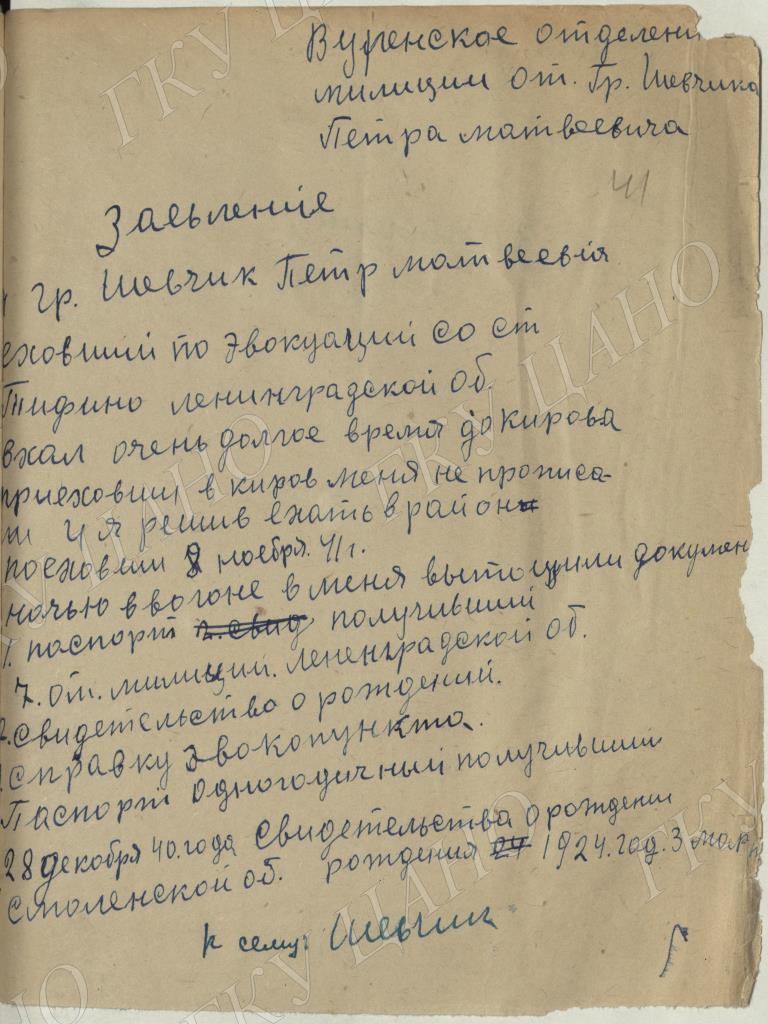 Вуренское отделени
милиции от. Гр. Шевчика
Петра матвеевича
41
Заевление
Гр. Шевчик Петр матвеевія
еховший по эвокуаций со ст
Тифино ленинградской об.
вхал очень долгое время докирова
приеховши в киров меня не прописа-
ли и я решив ехать в район
поеховши 9 ноебря. 41г.
ночью в вогоне в меня вытощили докумен
1. паспорт 2. свид получивший
7. от. милиции. лененградской об.
2. свидетельство о рождений.
справку эвокопункта.
Паспорт одногодичный получивший
28 декобря 40. года свидетельства о рождении
смоленской об. рождения 24 1924. год. 3 мар
к сему: Шевчик
ГКУ ЦАНО